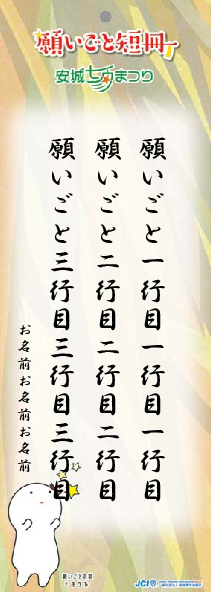 願いごと短冊
安城七夕まつり
願いごと一行目一行目一行目
願いごと二行目二行目二行目
願いごと三行目三行目三行目
お名前お名前お名前
願いごと短冊
JCI